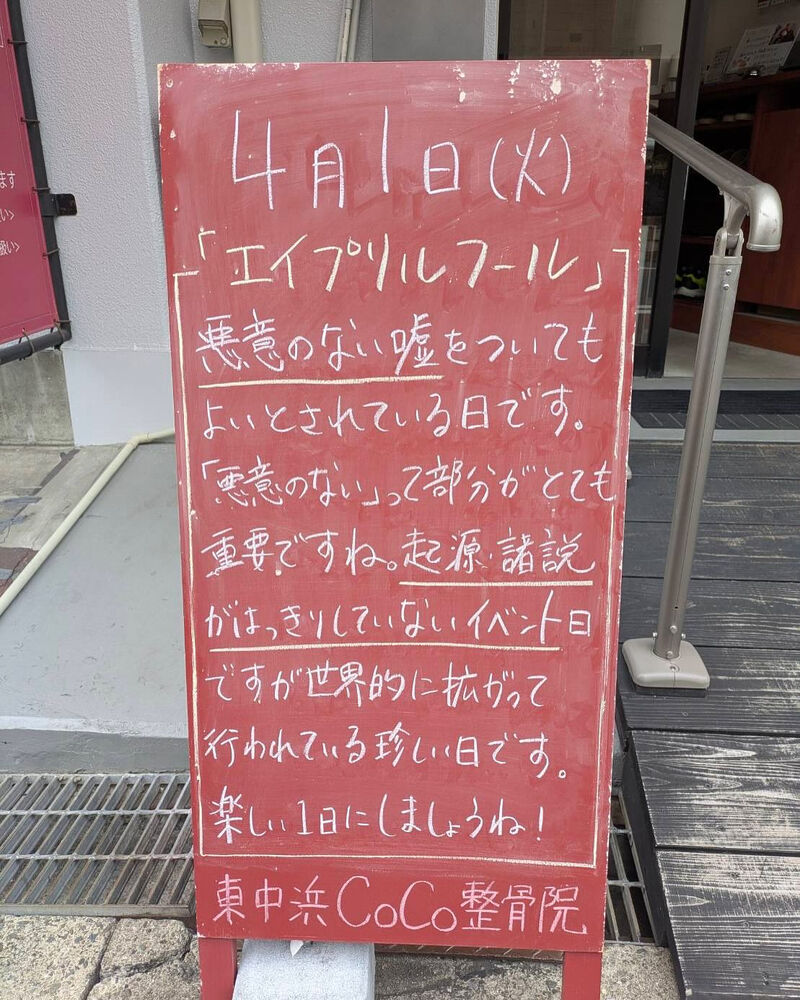 4月1日(火)
「エイプリルフール」
悪意のない嘘をついても
よいとされている日です。
「悪意のない」って部分がとても
重要ですね。起源・諸説
がはっきりしていないイベント日
ですが世界的に拡がって
行われている珍しい日です。
楽しい1日にしましょうね!
東中浜CoCo整骨院
ます